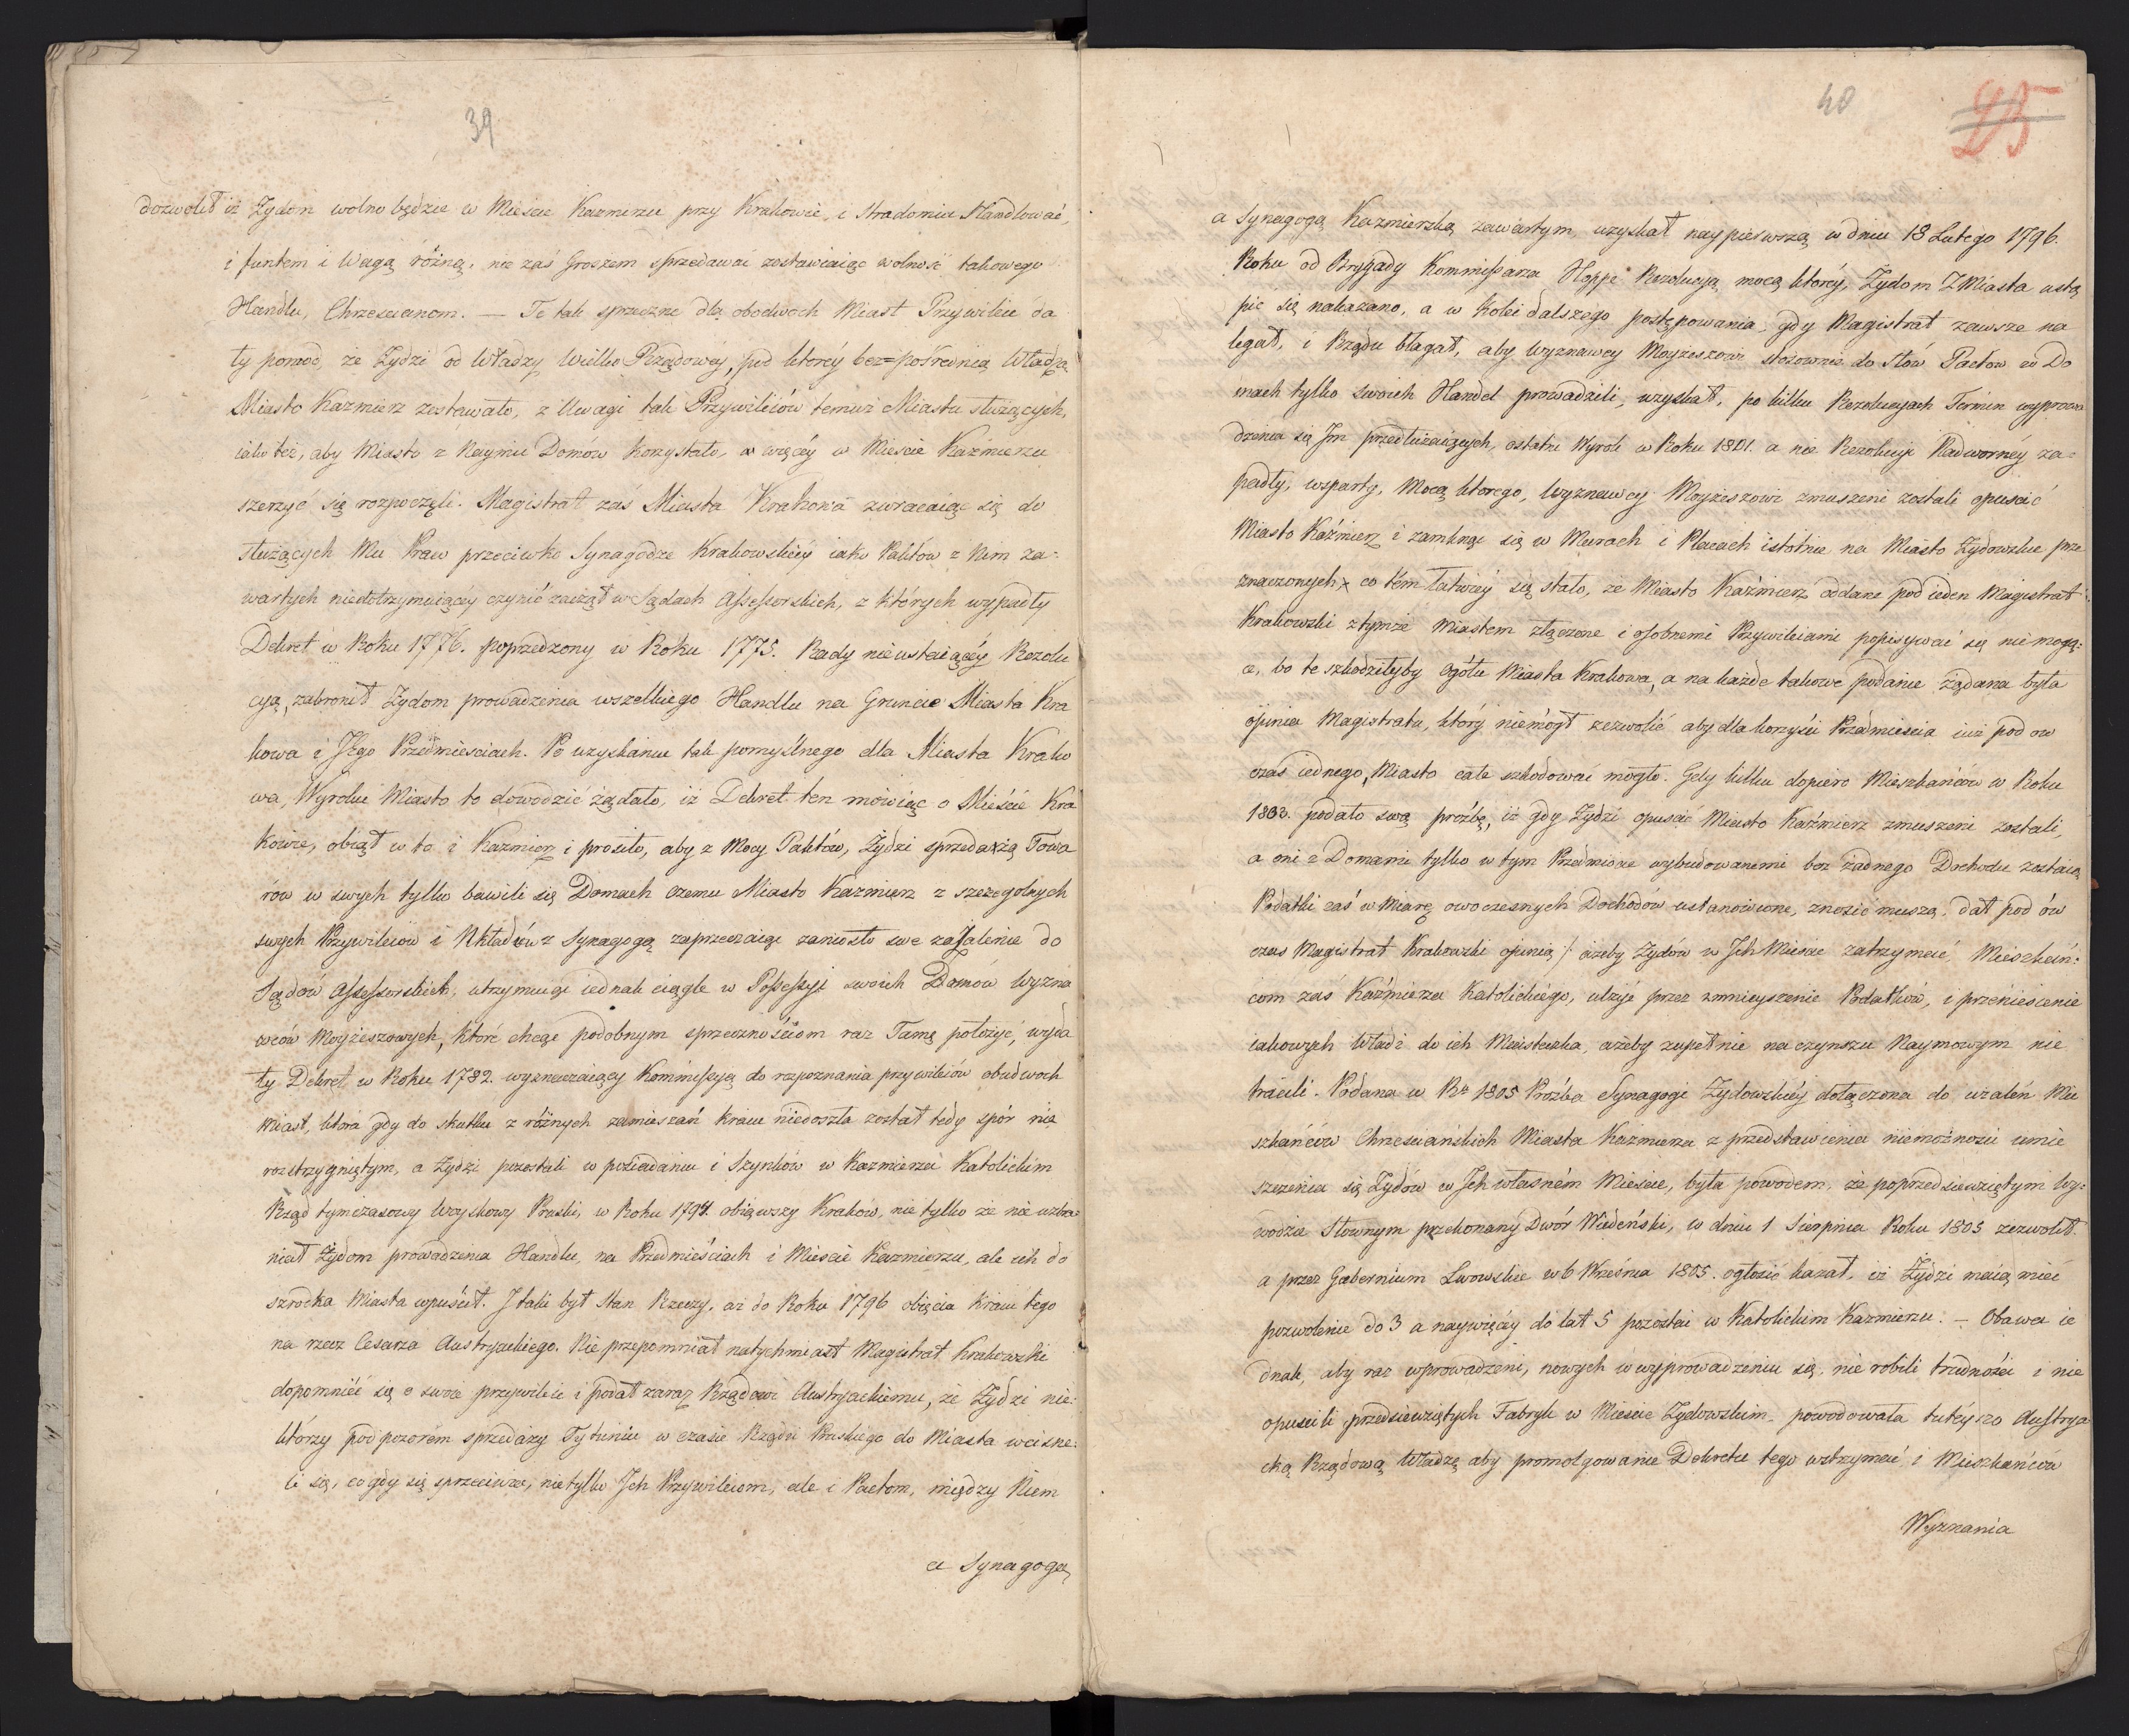 39
dozwolił iż Żydom wolno będzie w Mieście Kazmierzu przy Krakowie, i Stradomiu Handlować,
i funtem i Wagą różną, nie zaś Groszem sprzedawać zostawiaiąc wolność takowego
Handlu, Chrzescianom. — Te tak sprzeczne dla obodwoch Miast Przywileie da
ły powod, że Żydzi od Władzy Wielko Rządowéy, pod ktoréy bez=pośrednią Władzą
Miasto Kazmierz zostawało, z Uwagi tak Przywileiów temuż Miastu służących,
iako też, aby Miasto z Naymu Domów korzystało, w więcéy w Mieście Kaźmierzu
szerzyć się rozpoczęli. Magistrat zaś Miasta Krakowa zwracaiąc się do
służących Mu Praw przeciwko Synagodze Krakowskiéy iako Paktów z Nim za=
wartych niedotrzymuiącéy czynić zaczął w Sądach Assessorskich, z których wypadły
Dekret w Roku 1776. poprzedzony w Roku 1775. Rady nieustaiącéy Rezolu
cyą, zabronił Żydom prowadzenia wszelkiego Handlu na Gruncie Miasta Kra
kowa i Jego Przedmiesciach. Po uzyskaniu tak pomyślnego dla Miasta Krako
wa, Wyroku Miasto to dowodzić żądało, iż Dekret ten mówiąc o Mieście Kra
kowie, obiął w to i Kazmierz i prosiło, aby z Mocy Paktów, Żydzi sprzedażą Towa
rów w swych tylko bawili się Domach czemu Miasto Kazmierz z szczegolnych
swych Przywileiow i Układów z Synagogą zaprzeczaiąc zaniosło swe zażalenie do
Sądów Assessorskich, utrzymuiąc iednak ciągle w Possessyi swoich Domów Wyzna
wców Moyżeszowych, które chcąc podobnym sprzecznościom raz Tamę położyć, wyda
ły Dekret w Roku 1782. wyznaczaiący Kommissyą do rozpoznania przywileiów obudwoch
Miast, która gdy do skutku z różnych zamieszań kraiu niedoszła został tedy spór nie
rozstrzygniętym, a Żydzi pozostali w posiadaniu i Szynków w Kazmierzu Katolickim
Rząd tymczasowy Woyskowy Pruski, w Roku 1794. obiąwszy Kraków, nie tylko że nie uzbra=
niał Żydom prowadzenia Handlu, na Przedmieściach i Mieście Kazmierzu, ale ich do
szrodka Miasta wpuścił. J taki był stan Rzeczy, aż do Roku 1796 obięcia Kraiu tego
na rzecz Cesarza Austryackiego. Nie przepomniał natychmiast Magistrat Krakowski
dopomnieć się o swoie przywileie i podał zaraz Rządowi Austryackiemu, że Żydzi nie=
którzy pod pozorem sprzedaży Tytuniu w czasie Rządu Pruskiego do Miasta wcisne=
li się, co gdy się sprzeciwia, nietylko Jch Przywileiom, ale i Pactom, między Niem
a Synagogą
40
25
a Synagogą Kazmierską zawartym, uzyskał naypierwszą w dniu 18 Lutego 1796.
Roku od Brygady Kommissarza Hoppe Rezolucyą mocą któréy, Żydom z Miasta ustą
pić się nakazano, a w kolei dalszego postępowania, gdy Magistrat zawsze na
legał, i Rządu błagał, aby Wyznawcy Moyżeszowi stosownie do Słów Pactow w Do
mach tylko swoich Handel prowadzili, uzyskał, po kilku Rezolucyach Termin wyprowa
dzenia się Jm przedłużaiących, ostatni Wyrok w Roku 1801. a nie Rezolucyi Nadwornéy za=
padły, wsparty, Mocą ktorego, Wyznawcy Moyżeszowi zmuszeni zostali opuścić
Miasto Kaźmierz i zamknąć się w Murach i Placach istotnie na Miasto Żydowskie prze
znaczonych, co tém łatwiéy się stało, że Miasto Kaźmierz oddane pod ieden Magistrat
Krakowski z tymże Miastem złączone i osobnemi Przywileiami popisywać się niemogą=
ce, bo te szkodziłyby Ogółu Miasta Krakowa, a na każde takowe podanie żądana była
opinia Magistratu, który niemógł zezwolić aby dla korzyści Przedmieścia iuż pod ow
czas iednego, Miasto całe szkodować mogło. Gdy kilku dopiero Mieszkańców w Roku
1803. podało swą proźbę, iż gdy Żydzi opuscić Miasto Kaźmierz zmuszeni zostali,
a oni z Domami tylko w tym Przedmiocie wybudowanemi bez żadnego Dochodu zostaią
Podatki zaś w Miarę owoczesnych Dochodów ustanowione, znosić muszą, dał pod ów
czas Magistrat Krakowski opinią /: ażeby Żydów w Jch Mieście zatrzymać, Mieszkań=
com zaś Kaźmierza Katolickiego, ulżyć przez zmnieyszenie Podatków, i przeniesienie
iakowych Władz do ich Miasteczka, ażeby zupełnie na czynszu Naymowym nie
tracili. Podana w Rku 1805 Prośba Synagogi Żydowskiéy dołączona do użaleń Mie
szkańców Chrzesciańskich Miasta Kaźmierza z przedstawienia niemożności umie
szczenia się Żydów w Jch własném Mieście, była powodem, że poprzedsiewziętym Wy=
wodzie Słownym przekonany Dwór Wiedeński, w dniu 1 Sierpnia Roku 1805 zezwolił.
a przez Gubernium Lwowskie w 6 Września 1805. ogłosić kazał, iż Żydzi maią mieć
pozwolenie do 3 a naywięcéy do lat 5 pozostać w Katolickim Kazmierzu. — Obawa ie
dnak, aby raz wprowadzeni, nowych w wyprowadzeniu się, nie robili trudności i nie
opuscili przedsiewziętych Fabryk w Mieście Żydowskim powodowała tutéyszo Austrya
cką Rządową Władzę aby promolgowanie Dekretu tego wstrzymać i Mieszkańców
Wyznania